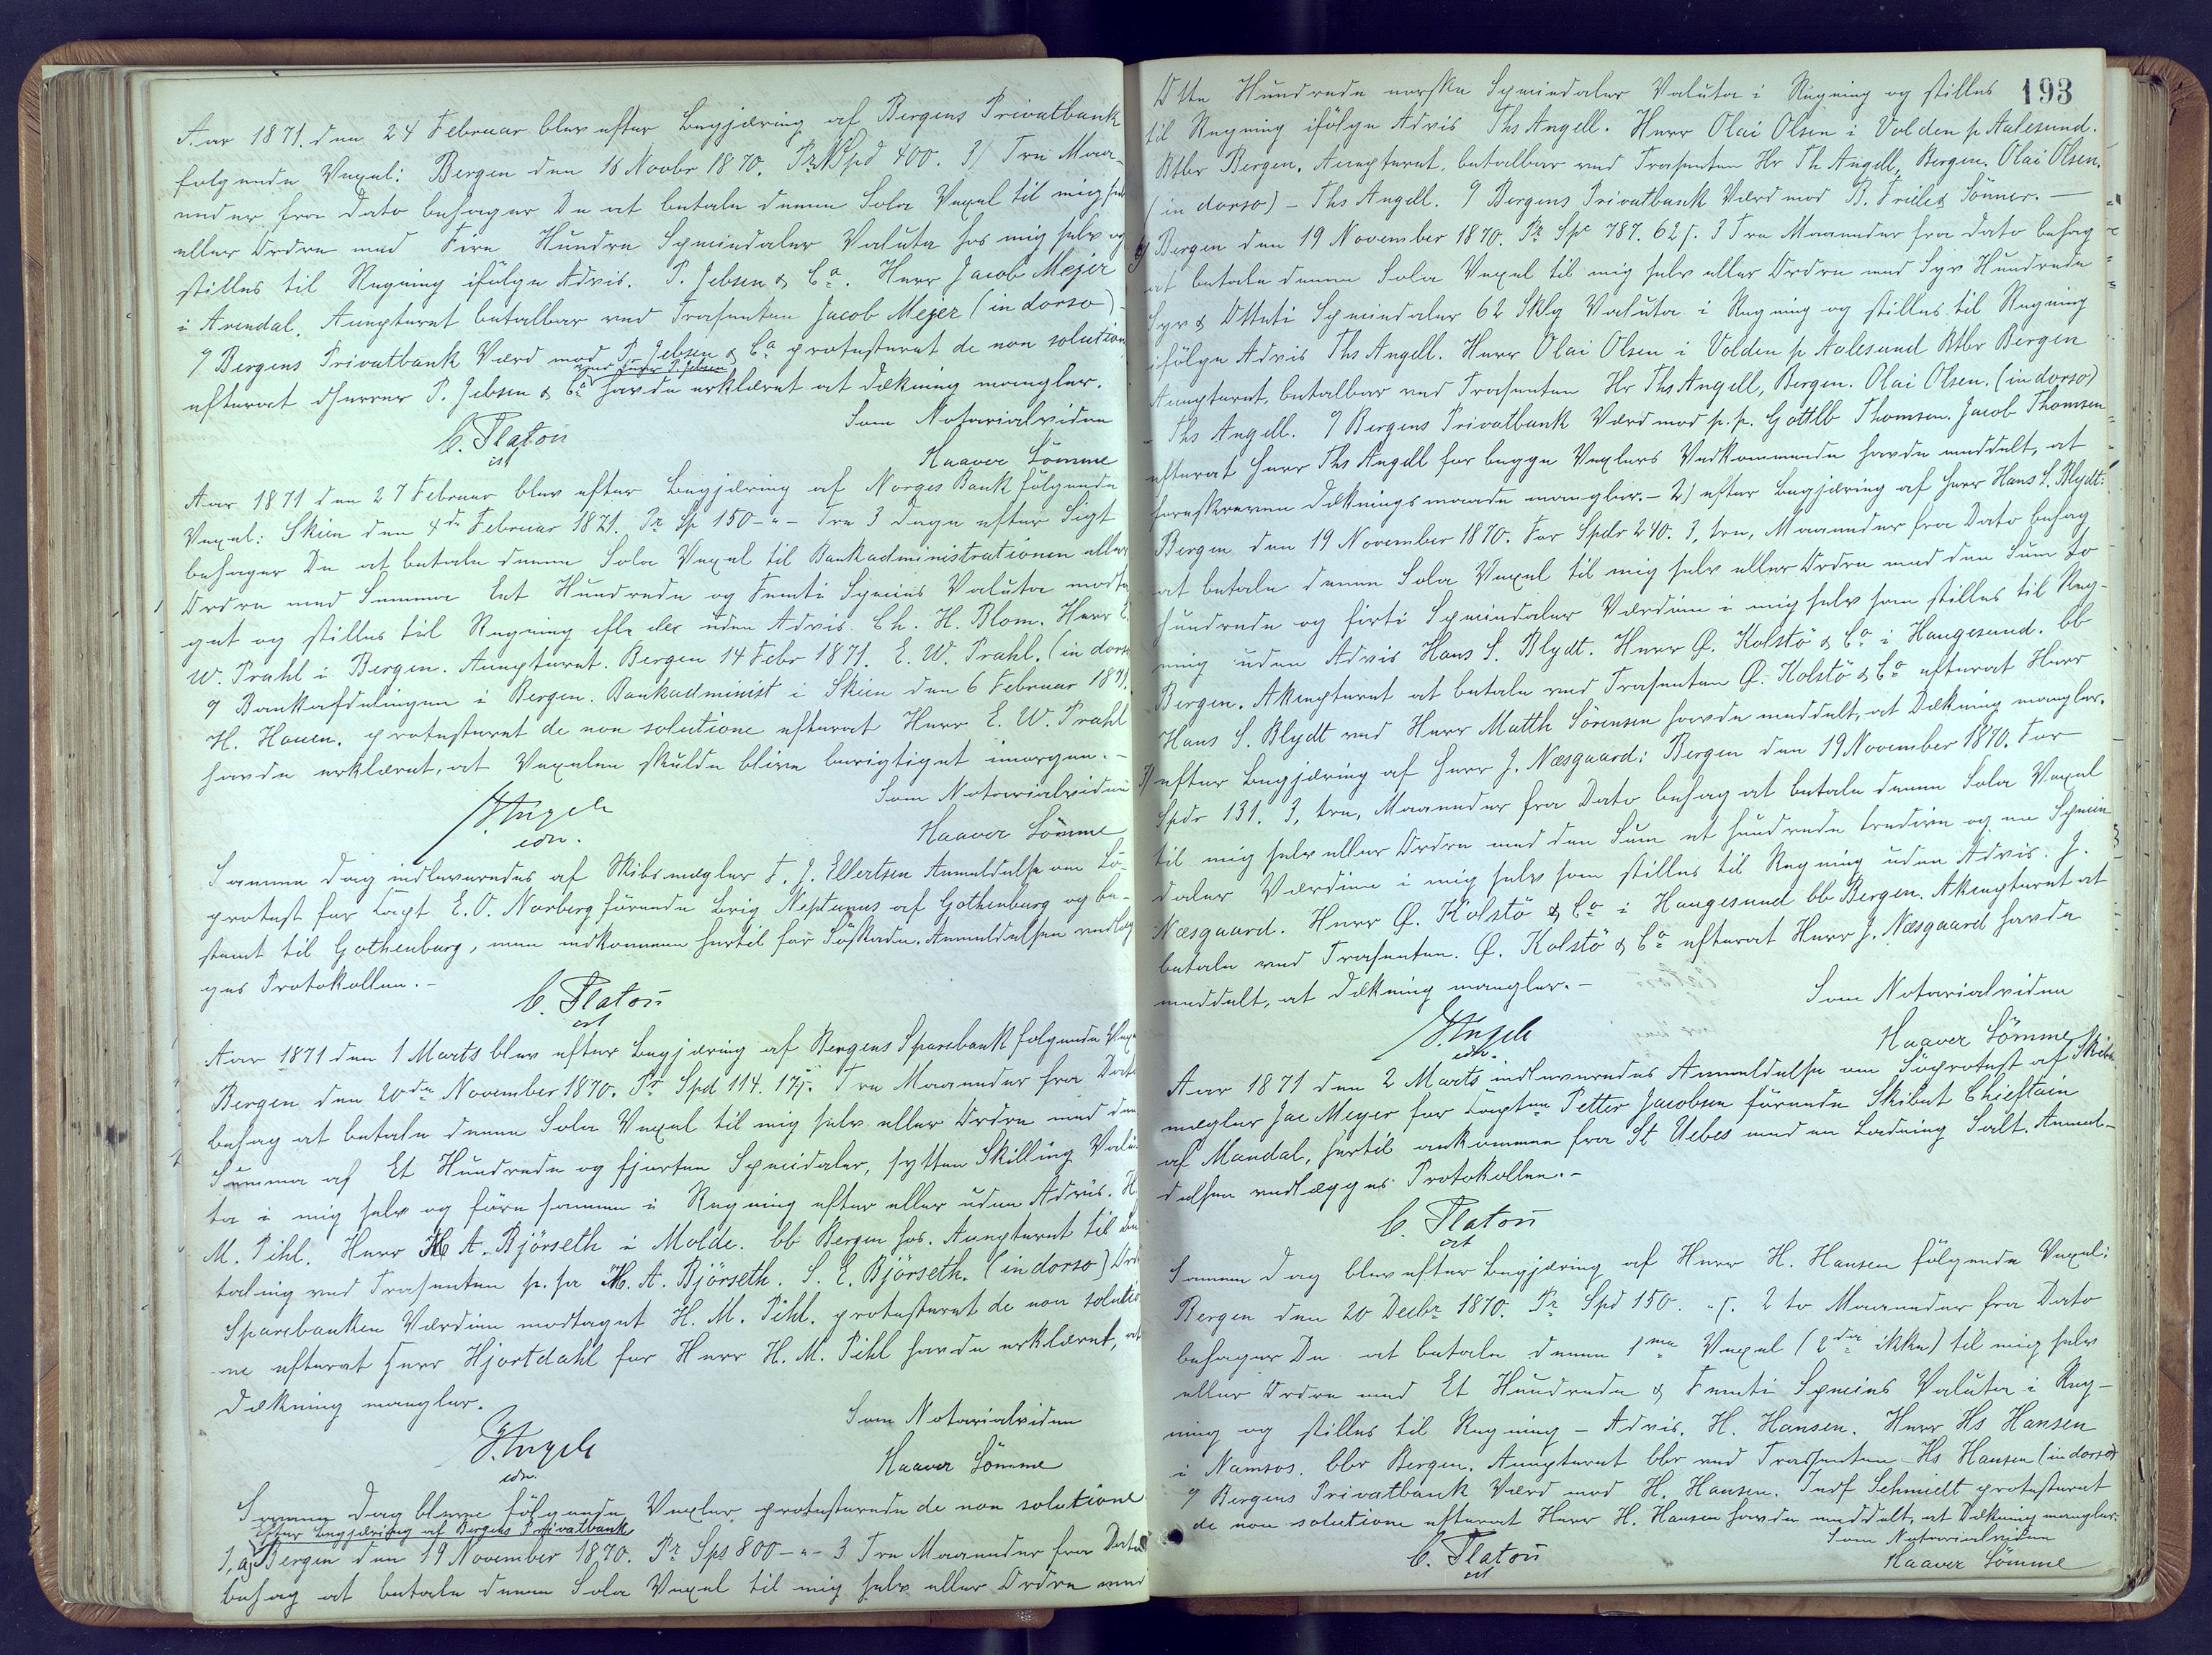 Aar 1871. den 24 Februar blev efter Begjæring af Bergens Privatbank
følgende Vexel: Bergen den 16 Novbr 1870. Pr Spd 400. 3/ Tre Maa-
neder fra Dato behager De at betale denne Sola Vexel til mig selv
eller Ordre med Fire Hundre Speciedaler Valuta hos mig selv og
stilles til Regning ifölge Advis. P. Jebsen & Co. Herr Jacob Mejer
i Arendal. Accepteret betalbar ved Trasenten Jacob Mejer (in dorso) -
Bergens Privatbank Værd mod P. Jebsen & Co protesteret de non solutione
ved Herr P. Jebsen
efterat Herrer P. Jebsen & Co havde erklæret at Dækning mangler.
Som Notarialvidne
C. Platou
cst
Haaver Lömme
Aar 1871 den 27 Februar blev efter Begjæring af Norges Bank følgende
Vexel: Skien den 4de Februar 1871. Pr Sp 150 - " - Tre 3 Dage efter Sigt
behager De at betale denne Sola Vexel til Bankadministrationen eller
Ordre med Summa Et Hundrede og Femti Species Valuta modta-
get og stilles til Regning uden Advis. Ch. H. Blom. Herr E.
W. Prahl i Bergen. Accepteret. Bergen 14 Febr 1871. E. W. Prahl. (in dorso)
Bankafdelingen i Bergen. Bankadminist i Skien den 6 Februar 1871.
H. Houen. protesteret de non solutione efterat Herr E. W. Prahl
havde erklæret, at Vexelen skulde blive berigtiget imorgen. -
Som Notarialvidne
edn.
Haaver Lömme
Samme Dag indleveredes af Skibsmægler F. J. Ellertsen Anmeldelse om Sö-
protest for Capt E. O. Norberg förende Brig Neptunus af Gothenburg og be-
stemt til Gothenburg, men indkommen hertil for Söskade. Anmeldelsen vedlæg-
ges Protokollen. -
C. Platou
cst
Aar 1871 den 1 Marts blev efter Begjæring af Bergens Sparebank følgende Vexel
Bergen den 20de November 1870. Pr Spd 114. 17 s. Tre Maaneder fra Dato
behag at betale denne Sola Vexel til mig selv eller Ordre med den
Summa af Et Hundrede og fjorten Speciedaler, sytten Skilling Valu-
ta i mig selv og före samme i Regning efter eller uden Advis. H.
M. Pihl. Herr A. Björseth i Molde. bb Bergen hos. Accepteret til Be-
taling ved Trasenten p. pa A. Björseth. S. E. Björseth. (in dorso)
Sparebanken Værdien modtaget H. M. Pihl. protesteret de non solutio-
ne efterat Herr Hjortdahl for Herr H. M. Pihl havde erklæret, at
Dækning mangler.
Som Notarialvidne
edn.
Haaver Lömme
Samme Dag bleve følgende Vexler protesterede de non solutione
efter Begjæring af Bergens Privatbank
1, a) Bergen den 19 November 1870. Pr Sps 800 - " - 3 Tre Maaneder fra Dato
behag at betale denne Sola Vexel til mig selv eller Ordre med
193
Otte Hundrede norske Speciedaler Valuta i Regning og stilles
til Regning ifölge Advis Ths Angell. Herr Olai Olsen i Volden p Aalesund.
Btlbr Bergen. Accepteret, betalbar ved Trasenten Hr Th Angell, Bergen. Olai Olsen.
(in dorso) - Ths Angell. Bergens Privatbank Værd mod B. Friele & Sönner. -
b) Bergen den 19 November 1870. Pr Spc 787. 62 s. 3 Tre Maaneder fra Dato behag
at betale denne Sola Vexel til mig selv eller Ordre med Syv Hundrede
Syv & Otteti Speciedaler 62 Sklg Valuta i Regning og stilles til Regning
ifölge Advis Ths Angell. Herr Olai Olsen i Volden p Aalesund Btlbr Bergen
Accepteret, betalbar ved Trasenten Hr Ths Angell, Bergen. Olai Olsen. (in dorso)
- Ths Angell. Bergens Privatbank Værd mod p. p. Gottlb Thomsen. Jacob Thomsen
efterat Herr Ths Angell for begge Vexlers Vedkommende havde meddelt, at
foreskreven Dækningsmaade mangler. - 2) efter Begjæring af Herr Hans S. Blydt:
Bergen den 19 November 1870. For Spdr 240. 3, tre, Maaneder fra Dato behag
at betale denne Sola Vexel til mig selv eller Ordre med den Sum to
hundrede og firti Speciedaler Værdien i mig selv som stilles til Reg-
ning uden Advis Hans S. Blydt. Herr Ø. Kolstö & Co i Haugesund. bb
Bergen. Akcepteret at betale ved Trasenten Ø. Kolstö & Co efterat Herr
Hans S. Blydt ved Herr Matth Sörensen havde meddelt, at Dækning mangler.
3) efter Begjæring af Herr J. Næsgaard: Bergen den 19 November 1870. For
Spdr 131. 3, tre, Maaneder fra Dato behag at betale denne Sola Vexel
til mig selv eller Ordre med den Sum et hundrede tredive og en Specie-
daler Værdien i mig selv som stilles til Regning uden Advis. J.
Næsgaard. Herr Ø. Kolstö & Co i Haugesund bb Bergen. Akcepteret at
betale ved Trasenten. Ø. Kolstö & Co efterat Herr J. Næsgaard havde
meddelt, at Dækning mangler. -
Som Notarialvidne
edn.
Haaver Lömme
Aar 1871 den 2 Marts indleveredes Anmeldelse om Söprotest af Skibs-
mægler Jac Meyer for Capten Petter Jacobsen förende Skibet Chieftain
af Mandal, hertil ankommen fra St Uebes med en Ladning Salt. Anmel-
delsen vedlægges Protokollen. -
C. Platou
cst
Samme Dag blev efter Begjæring af Herr H. Hansen følgende Vexel:
Bergen den 20 Decbr 1870. Pr Spd 150. " s. 2 to Maaneder fra Dato
behager De at betale denne 1ma Vexel (2den ikke) til mig selv
eller Ordre med Et Hundrede & Femti Species Valuta i Reg-
ning og stilles til Regning - Advis. H. Hansen. Herr Hs Hansen
i Namsos. bbr Bergen. Accepteret bbr ved Trassenten Hs Hansen (in dorso)
Bergens Privatbank Værd mod H. Hansen. Indf Schmidt protesteret
de non solutione efterat Herr H. Hansen havde meddelt, at Dækning mangler.
Som Notarialvidne
C. Platou
cst
Haaver Lömme